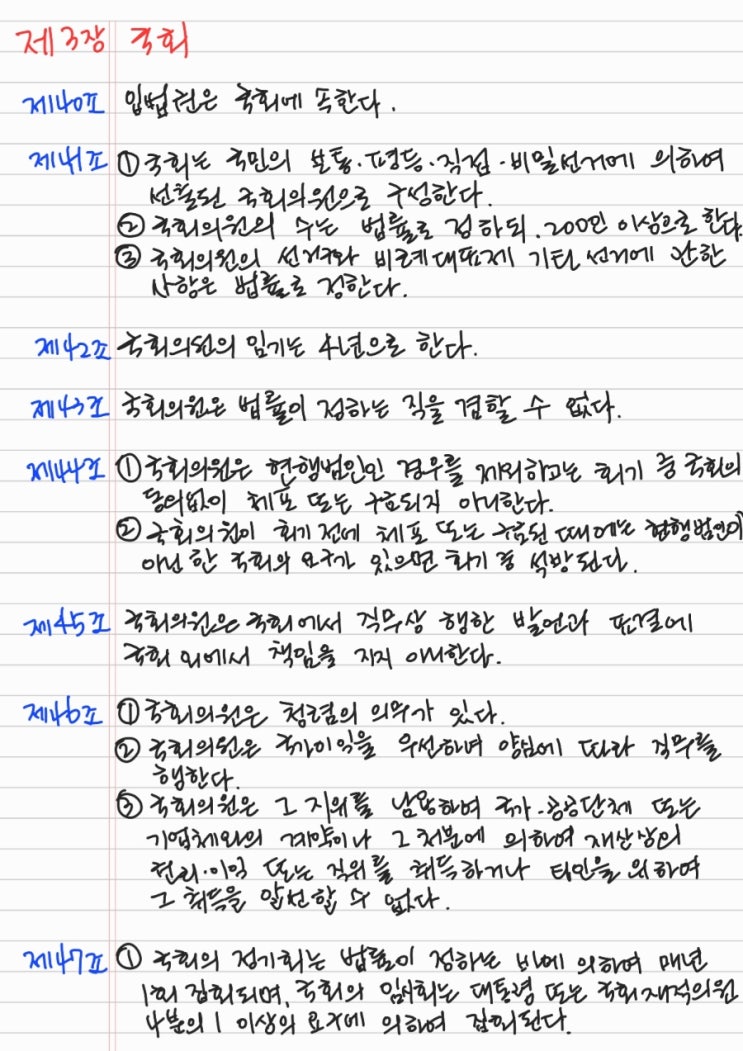 제3장 국회
제40조 입법권은 국회에 속한다.
제41조 ① 국회는 국민의 보통·평등·직접·비밀선거에 의하여
선출된 국회의원으로 구성한다.
② 국회의원의 수는 법률로 정하되, 200인 이상으로 한다.
③ 국회의원의 선거구와 비례대표제 기타 선거에 관한
사항은 법률로 정한다.
제42조 국회의원의 임기는 4년으로 한다.
제43조 국회의원은 법률이 정하는 직을 겸할 수 없다.
제44조 ① 국회의원은 현행범인인 경우를 제외하고는 회기 중 국회의
동의없이 체포 또는 구금되지 아니한다.
② 국회의원이 회기 전에 체포 또는 구금된 때에는 현행범인이
아닌 한 국회의 요구가 있으면 회기 중 석방된다.
제45조 국회의원은 국회에서 직무상 행한 발언과 표결에
국회 외에서 책임을 지지 아니한다.
제46조 ① 국회의원은 청렴의 의무가 있다.
② 국회의원은 국가이익을 우선하여 양심에 따라 직무를
행한다.
③ 국회의원은 그 지위를 남용하여 국가·공공단체 또는
기업체와의 계약이나 그 처분에 의하여 재산상의
권리·이익 또는 직위를 취득하거나 타인을 위하여
그 취득을 알선할 수 없다.
제47조 ① 국회의 정기회는 법률이 정하는 바에 의하여 매년
1회 집회되며, 국회의 임시회는 대통령 또는 국회재적의원
4분의 1 이상의 요구에 의하여 집회된다.